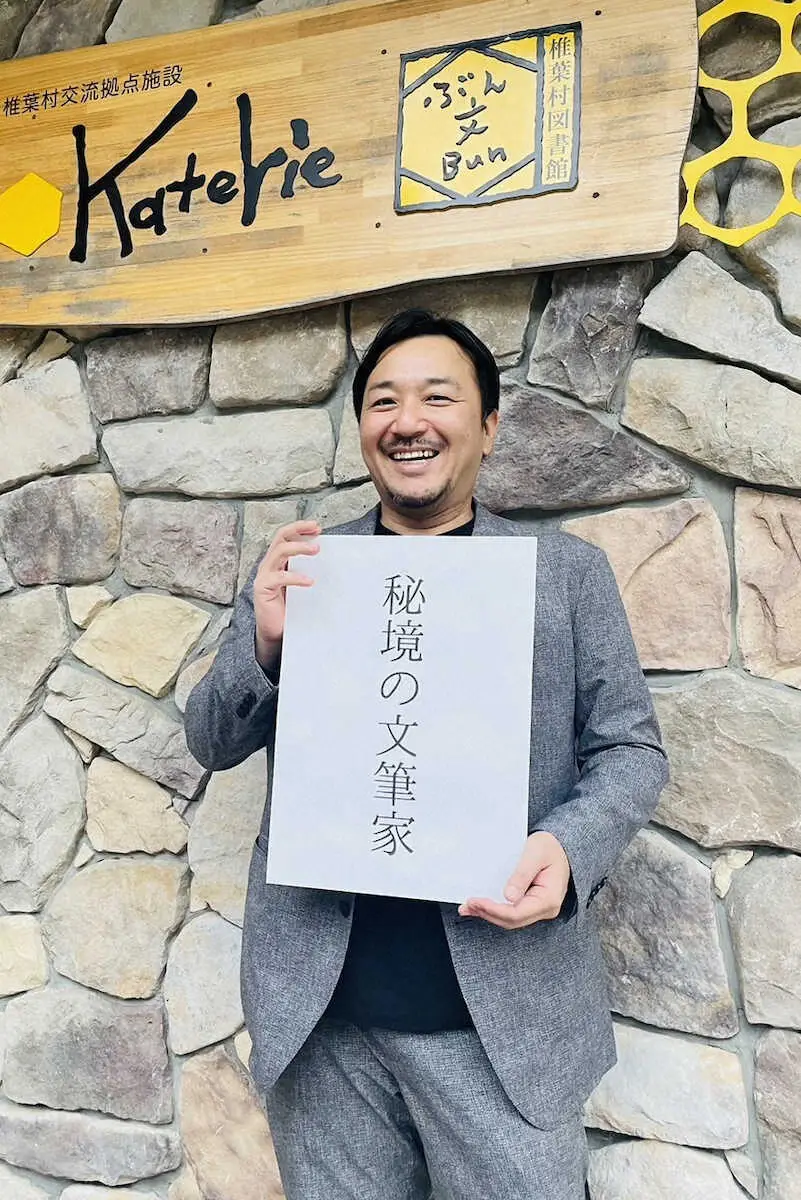 椎葉村交流拠点施設
Katerie
ぶん
文
Bun
椎葉村図書館
秘境の文筆家